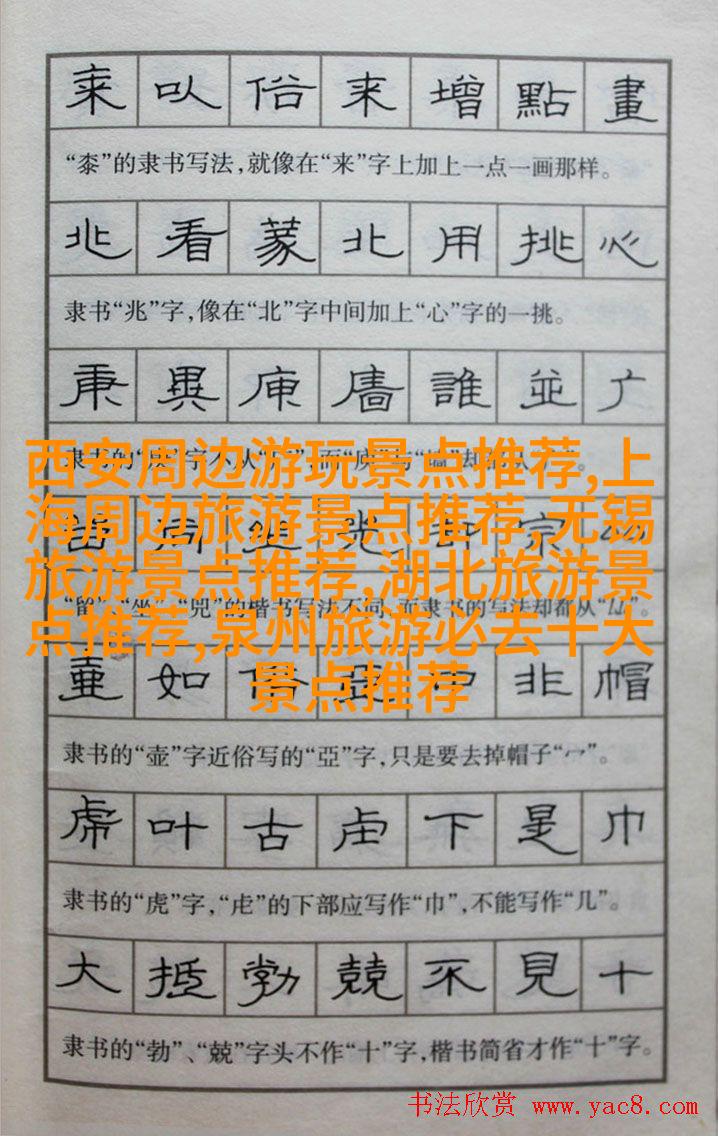 来 以 俗 来 增 點 畫
“桼”的隶书写法,就像在“来”字上加上一点一画那样。
兆 看 篆 北 用 挑 心
隶书“兆”字,像在“北”字中间加上“心”字的一挑。
庚 異 庾 廧 誰 並 广
西安周边游玩景点推荐,上
海周边旅游景点推荐,无锡
旅游景点推荐,湖北旅游景
点推荐,泉州旅游必去十大
景点推荐
“留”“坐”“兜”的楷书写法不同,而隶书的写法却都从“吅”。
壷 如 俗 亞 非 帽
隶书的“壶”字近俗写的“亞”字,只是要去掉帽子“冖”。
虎 叶 古 虍 下 是 巾
隶书的“虎”字,“虍”的下部应写作“巾”,不能写作“几”。
大 抵 勃 兢 不 見 十
隶书的“勃”、“兢”字头不作“十”字,楷书简省才作“十”字。
书法欣赏 www.yac8.com